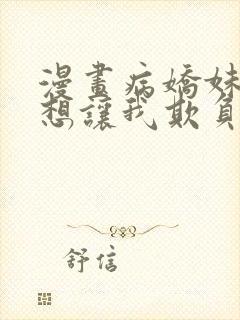 漫畫病嬌妹
想讓我欺負
舒信